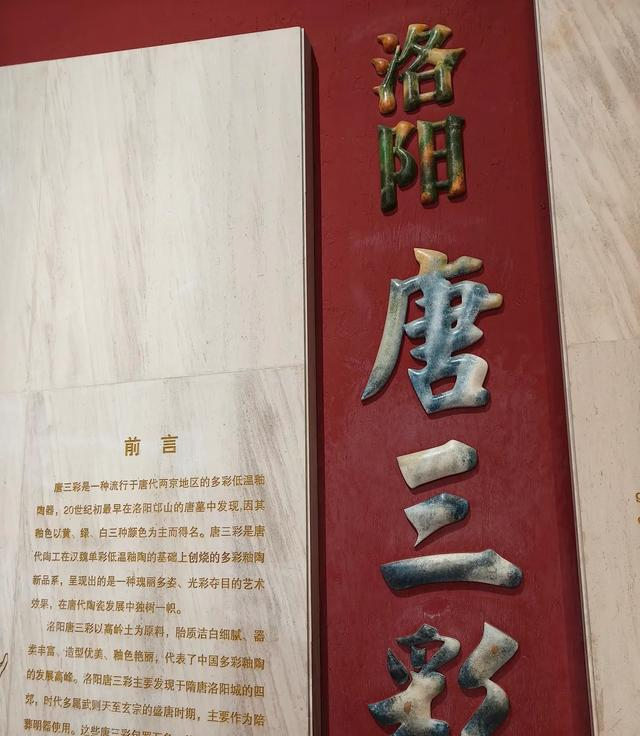 洛阳
唐三彩
前言
唐三彩是一种流行于唐代两京地区的多彩低温釉
陶器，20世纪初最早在洛阳邙山的唐墓中发现,因其
釉色以黄、绿、白三种颜色为主而得名。唐三彩是唐
代陶工在汉魏单彩低温釉陶的基础上创烧的多彩釉陶
新品系，呈现出的是一种瑰丽多姿、光彩夺目的艺术
效果，在唐代陶瓷发展中独树一帜。
洛阳唐三彩以高岭土为原料，胎质洁白细腻、器
类丰富、造型优美、釉色艳丽，代表了中国多彩釉陶
的发展高峰。洛阳唐三彩主要发现于隋唐洛阳城的四
郊，时代多属武则天至玄宗的盛唐时期，主要作为陪
葬明器使用。这些唐三彩包罗万象